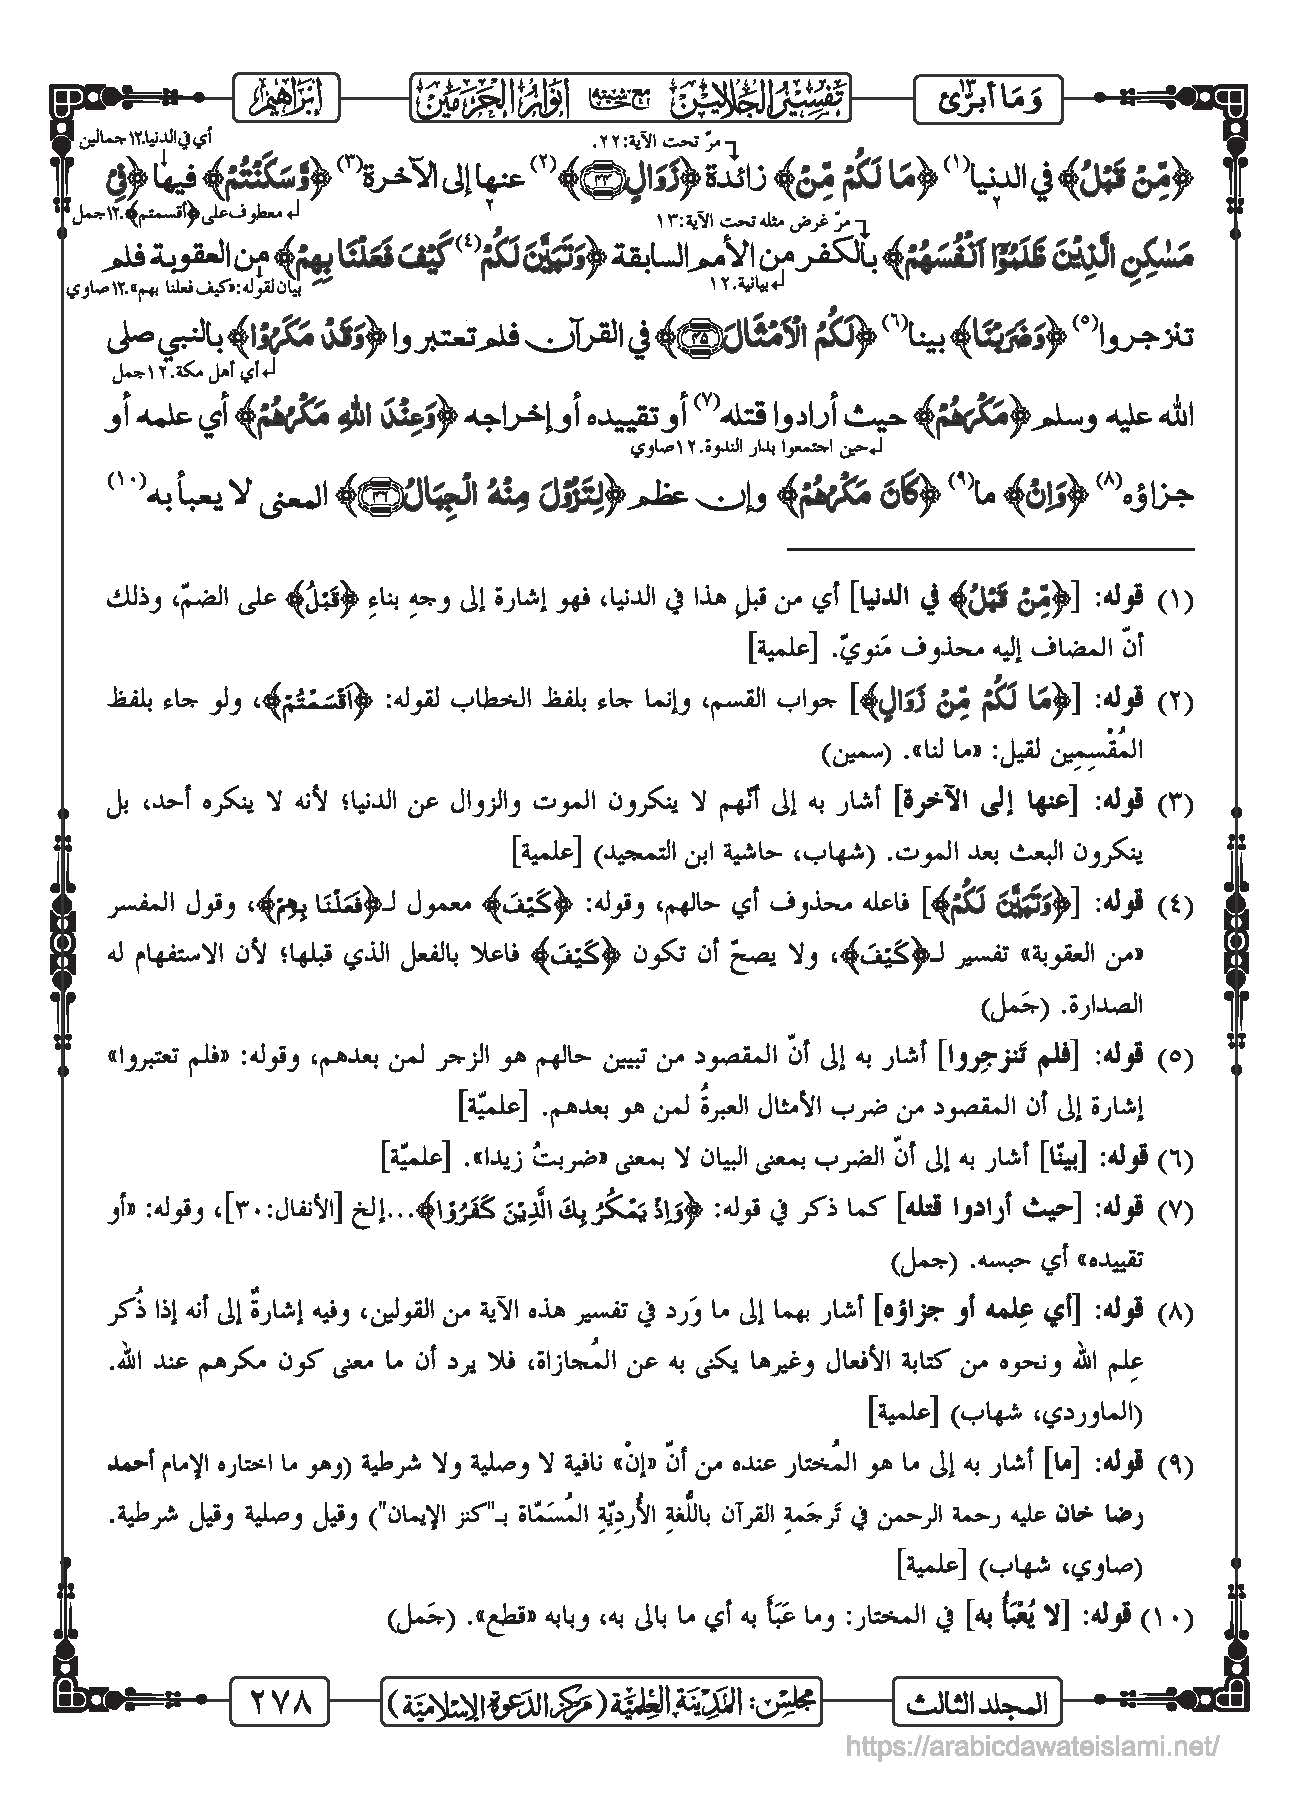 وَمَا أبرّئ ١٣
تفسير الجلالين مع حاشيته أنوار الحرمين
إبراهيم
مرّ تحت الآية:٢٢.
أي في الدنيا.١٢ جمالين
﴿مِّنْ قَبْلُ﴾ في الدنيا(١) ﴿مَا لَكُمْ مِّنْ﴾ زائدة ﴿زَوَالٍ ٤٤﴾(٢) عنها إلى الآخرة(٣) ﴿وَّسَكَنْتُمْ﴾ فيها ﴿فِيْ
معطوف على ﴿أقسمتم﴾.١٢جمل
مرّ غرض مثله تحت الآية:١٣
مَسٰكِنِ الَّذِيْنَ ظَلَمُوْۤا اَنْفُسَهُمْ﴾ بالكفر من الأمم السابقة ﴿وَتَبَيَّنَ لَكُمْ(٤) كَيْفَ فَعَلْنَا بِهِمْ﴾ من العقوبة فلم
بيانية.١٢
بيان لقوله: «كيف فعلنا بهم».١٢ صاوي
تنزجروا(٥) ﴿وَضَرَبْنَا﴾ بينا(٦) ﴿لَكُمُ الْاَمْثَالَ ٤٥﴾ في القرآن فلم تعتبروا ﴿وَقَدْ مَكَرُوْا﴾ بالنبي صلى
أي أهل مكة.١٢جمل
الله عليه وسلم ﴿مَكْرَهُمْ﴾ حيث أرادوا قتله(٧) أو تقييده أو إخراجه ﴿وَعِنْدَ اللهِ مَكْرُهُمْ﴾ أي علمه أو
حين اجتمعوا بدار الندوة.١٢صاوي
جزاؤه(٨) ﴿وَاِنْ﴾ ما(٩) ﴿كَانَ مَكْرُهُمْ﴾ وإن عظم ﴿لِتَزُوْلَ مِنْهُ الْجِبَالُ ٤٦﴾ المعنى لا يعبأ به(١٠)
(١) قوله: [﴿مِّنْ قَبْلُ﴾ في الدنيا] أي من قبلِ هذا في الدنيا، فهو إشارة إلى وجهِ بناءِ ﴿قَبْلُ﴾ على الضمّ، وذلك
أنّ المضاف إليه محذوف مَنويّ. [علمية]
(٢) قوله: [﴿مَا لَكُمْ مِّنْ زَوَالٍ﴾] جواب القسم، وإنما جاء بلفظ الخطاب لقوله: ﴿اَقْسَمْتُمْ﴾، ولو جاء بلفظ
المُقْسِمِين لقيل: «ما لنا». (سمين)
(٣) قوله: [عنها إلى الآخرة] أشار به إلى أنّهم لا ينكرون الموت والزوال عن الدنيا؛ لأنه لا ينكره أحد، بل
ينكرون البعث بعد الموت. (شهاب، حاشية ابن التمجيد) [علمية]
(٤) قوله: [﴿وَتَبَيَّنَ لَكُمْ﴾] فاعله محذوف أي حالهم، وقوله: ﴿كَيْفَ﴾ معمول لـ﴿فَعَلْنَا بِهِمْ﴾، وقول المفسر
«من العقوبة» تفسير لـ﴿كَيْفَ﴾، ولا يصحّ أن تكون ﴿كَيْفَ﴾ فاعلا بالفعل الذي قبلها؛ لأن الاستفهام له
الصدارة. (جَمل)
(٥) قوله: [فلم تَنزجِروا] أشار به إلى أنّ المقصود من تبيين حالهم هو الزجر لمن بعدهم، وقوله: «فلم تعتبروا»
إشارة إلى أن المقصود من ضرب الأمثال العبرةُ لمن هو بعدهم. [علميّة]
(٦) قوله: [بينّا] أشار به إلى أنّ الضرب بمعنى البيان لا بمعنى «ضربتُ زيدا». [علميّة]
(٧) قوله: [حيث أرادوا قتله] كما ذكر في قوله: ﴿وَاِذْ يَمْكُرُ بِكَ الَّذِيْنَ كَفَرُوْا﴾...إلخ [الأنفال:٣٠]، وقوله: «أو
تقييده» أي حبسه. (جمل)
(٨) قوله: [أي عِلمه أو جزاؤه] أشار بهما إلى ما وَرد في تفسير هذه الآية من القولين، وفيه إشارةٌ إلى أنه إذا ذُكر
عِلم الله ونحوه من كتابة الأفعال وغيرها يكنى به عن المُجازاة، فلا يرد أن ما معنى كون مكرهم عند الله.
(الماوردي، شهاب) [علمية]
(٩) قوله: [ما] أشار به إلى ما هو المُختار عنده من أنّ «إنْ» نافية لا وصلية ولا شرطية (وهو ما اختاره الإمام أحمد
رضا خان عليه رحمة الرحمن في تَرجَمةِ القرآن باللُّغةِ الأُردِيّةِ المُسَمّاة بـ"كنز الإيمان") وقيل وصلية وقيل شرطية.
(صاوي، شهاب) [علمية]
(١٠) قوله: [لا يُعْبَأُ به] في المختار: وما عَبَأَ به أي ما بالى به، وبابه «قطع». (جَمل)
المجلد الثالث
مجلس: المدينة العلمية (مركز الدعوة الإسلامية)
٢٧٨
https://arabicdawateislami.net/